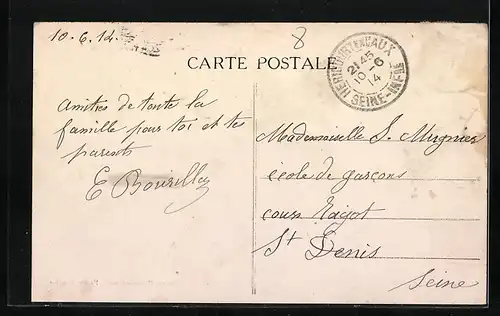 10.6.14
8
CARTE POSTALE
HERICOURT EN CAUX
21 45
10 - 6
14
SEINE-INFRE
Amitiés de toute la
famille pour toi et tes
parents
E Bourillon
Mademoiselle S. Mugnier
école de garçons
cours Ragot
St Denis
Seine